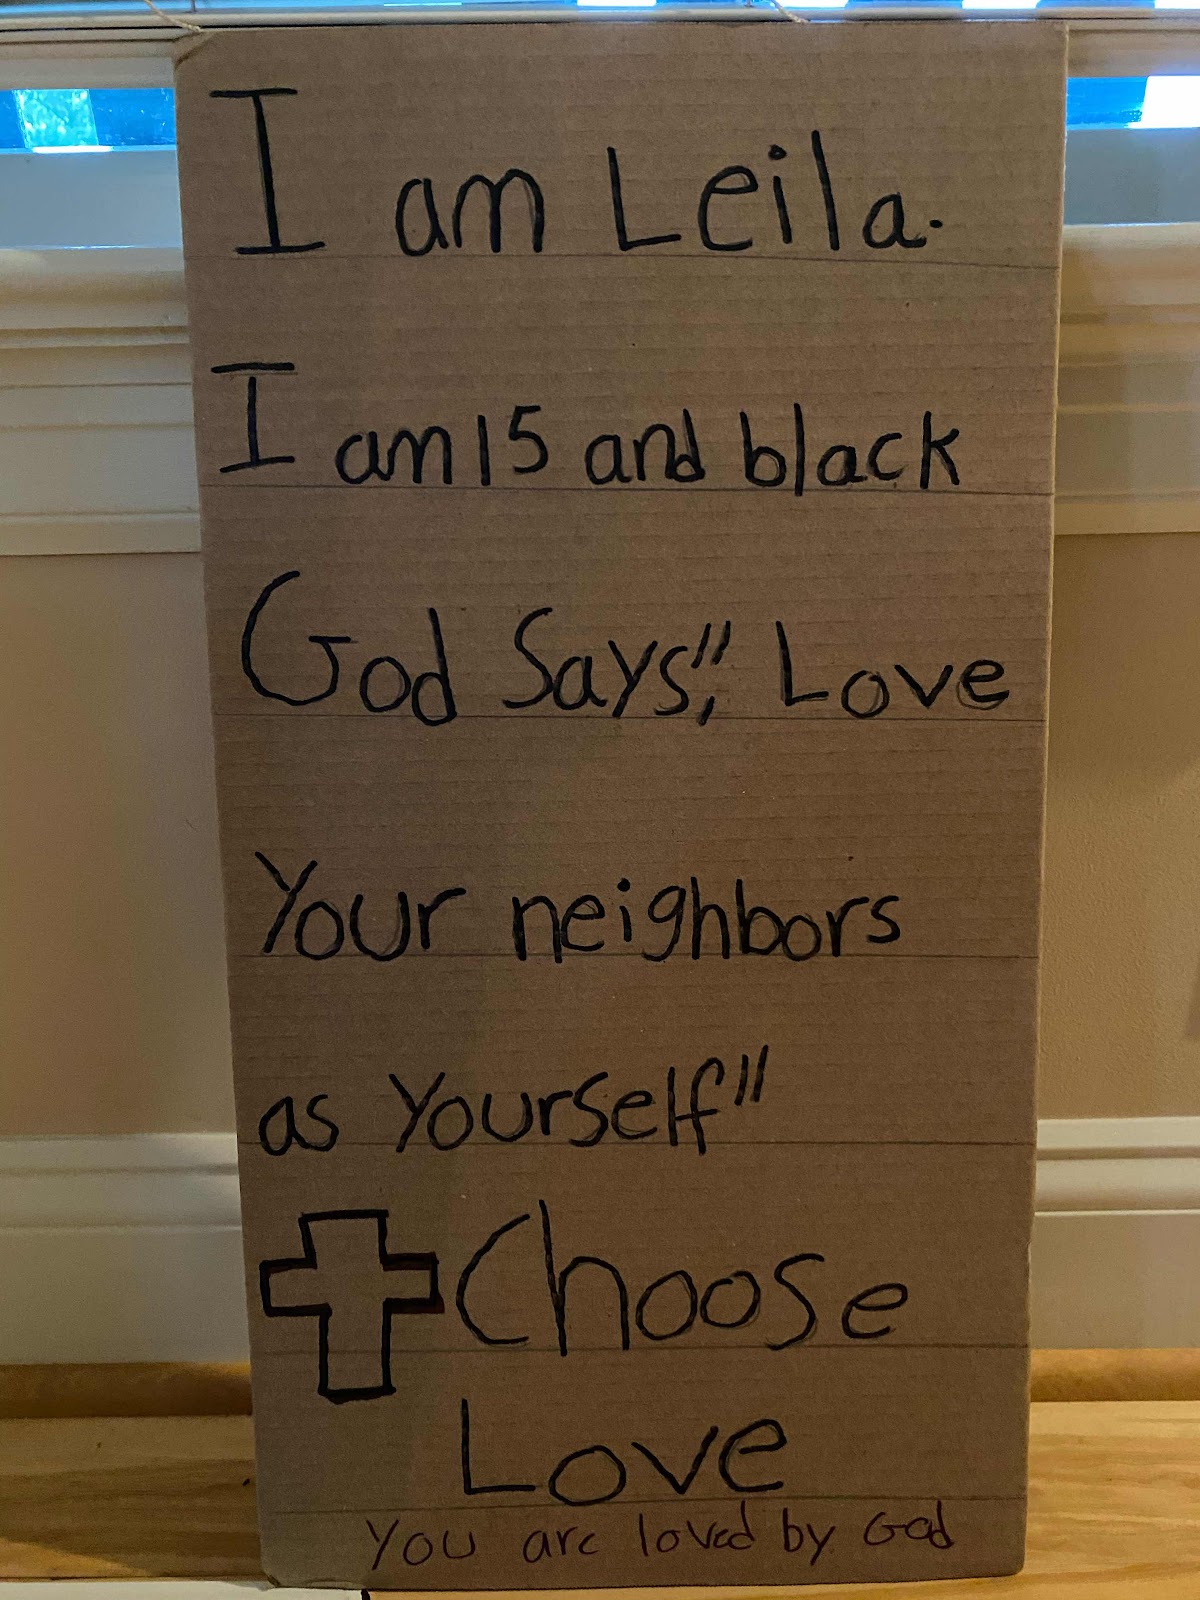 I am Leila.
I am 15 and black
God Says," Love
Your neighbors
as Yourself"
Choose
Love
You are loved by God